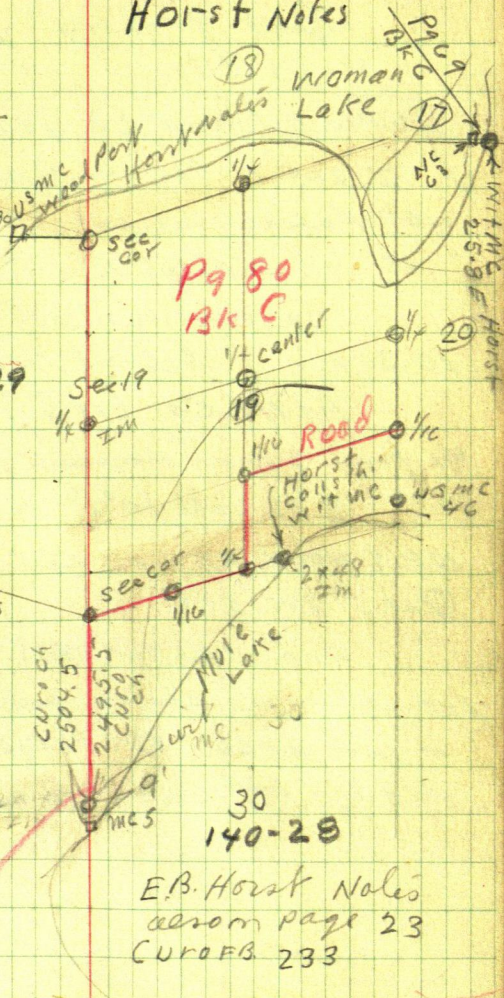 Horst Notes
Pg 69
Bk G
18
Woman
Lake
17
USMC
Wood Post
Horst Notes
1/4
sec
cor
Wit MC
25.8 E Horst
Pg 80
Bk C
1/4 center
1/4
20
29
Sec 19
1/4
Im
19
1/16
Road
1/16
Horst
calls this
Wit MC
USMC
46
sec cor
1/16
1/4
2x48
Im
Mule
Lake
2504.5
2495.5
30
wit
mc
9'
mc 5
30
140-28
E.B. Horst Notes
also on page 23
FB 233